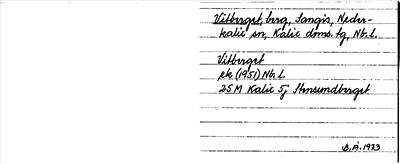 Vitberget, berg, Sangis, Neder-
kalix sn, Kalix doms. tg, Nb. l.
Vitberget
ek. (1951) Nb. l.
25 M Kalix 5j
S.Å. 1973